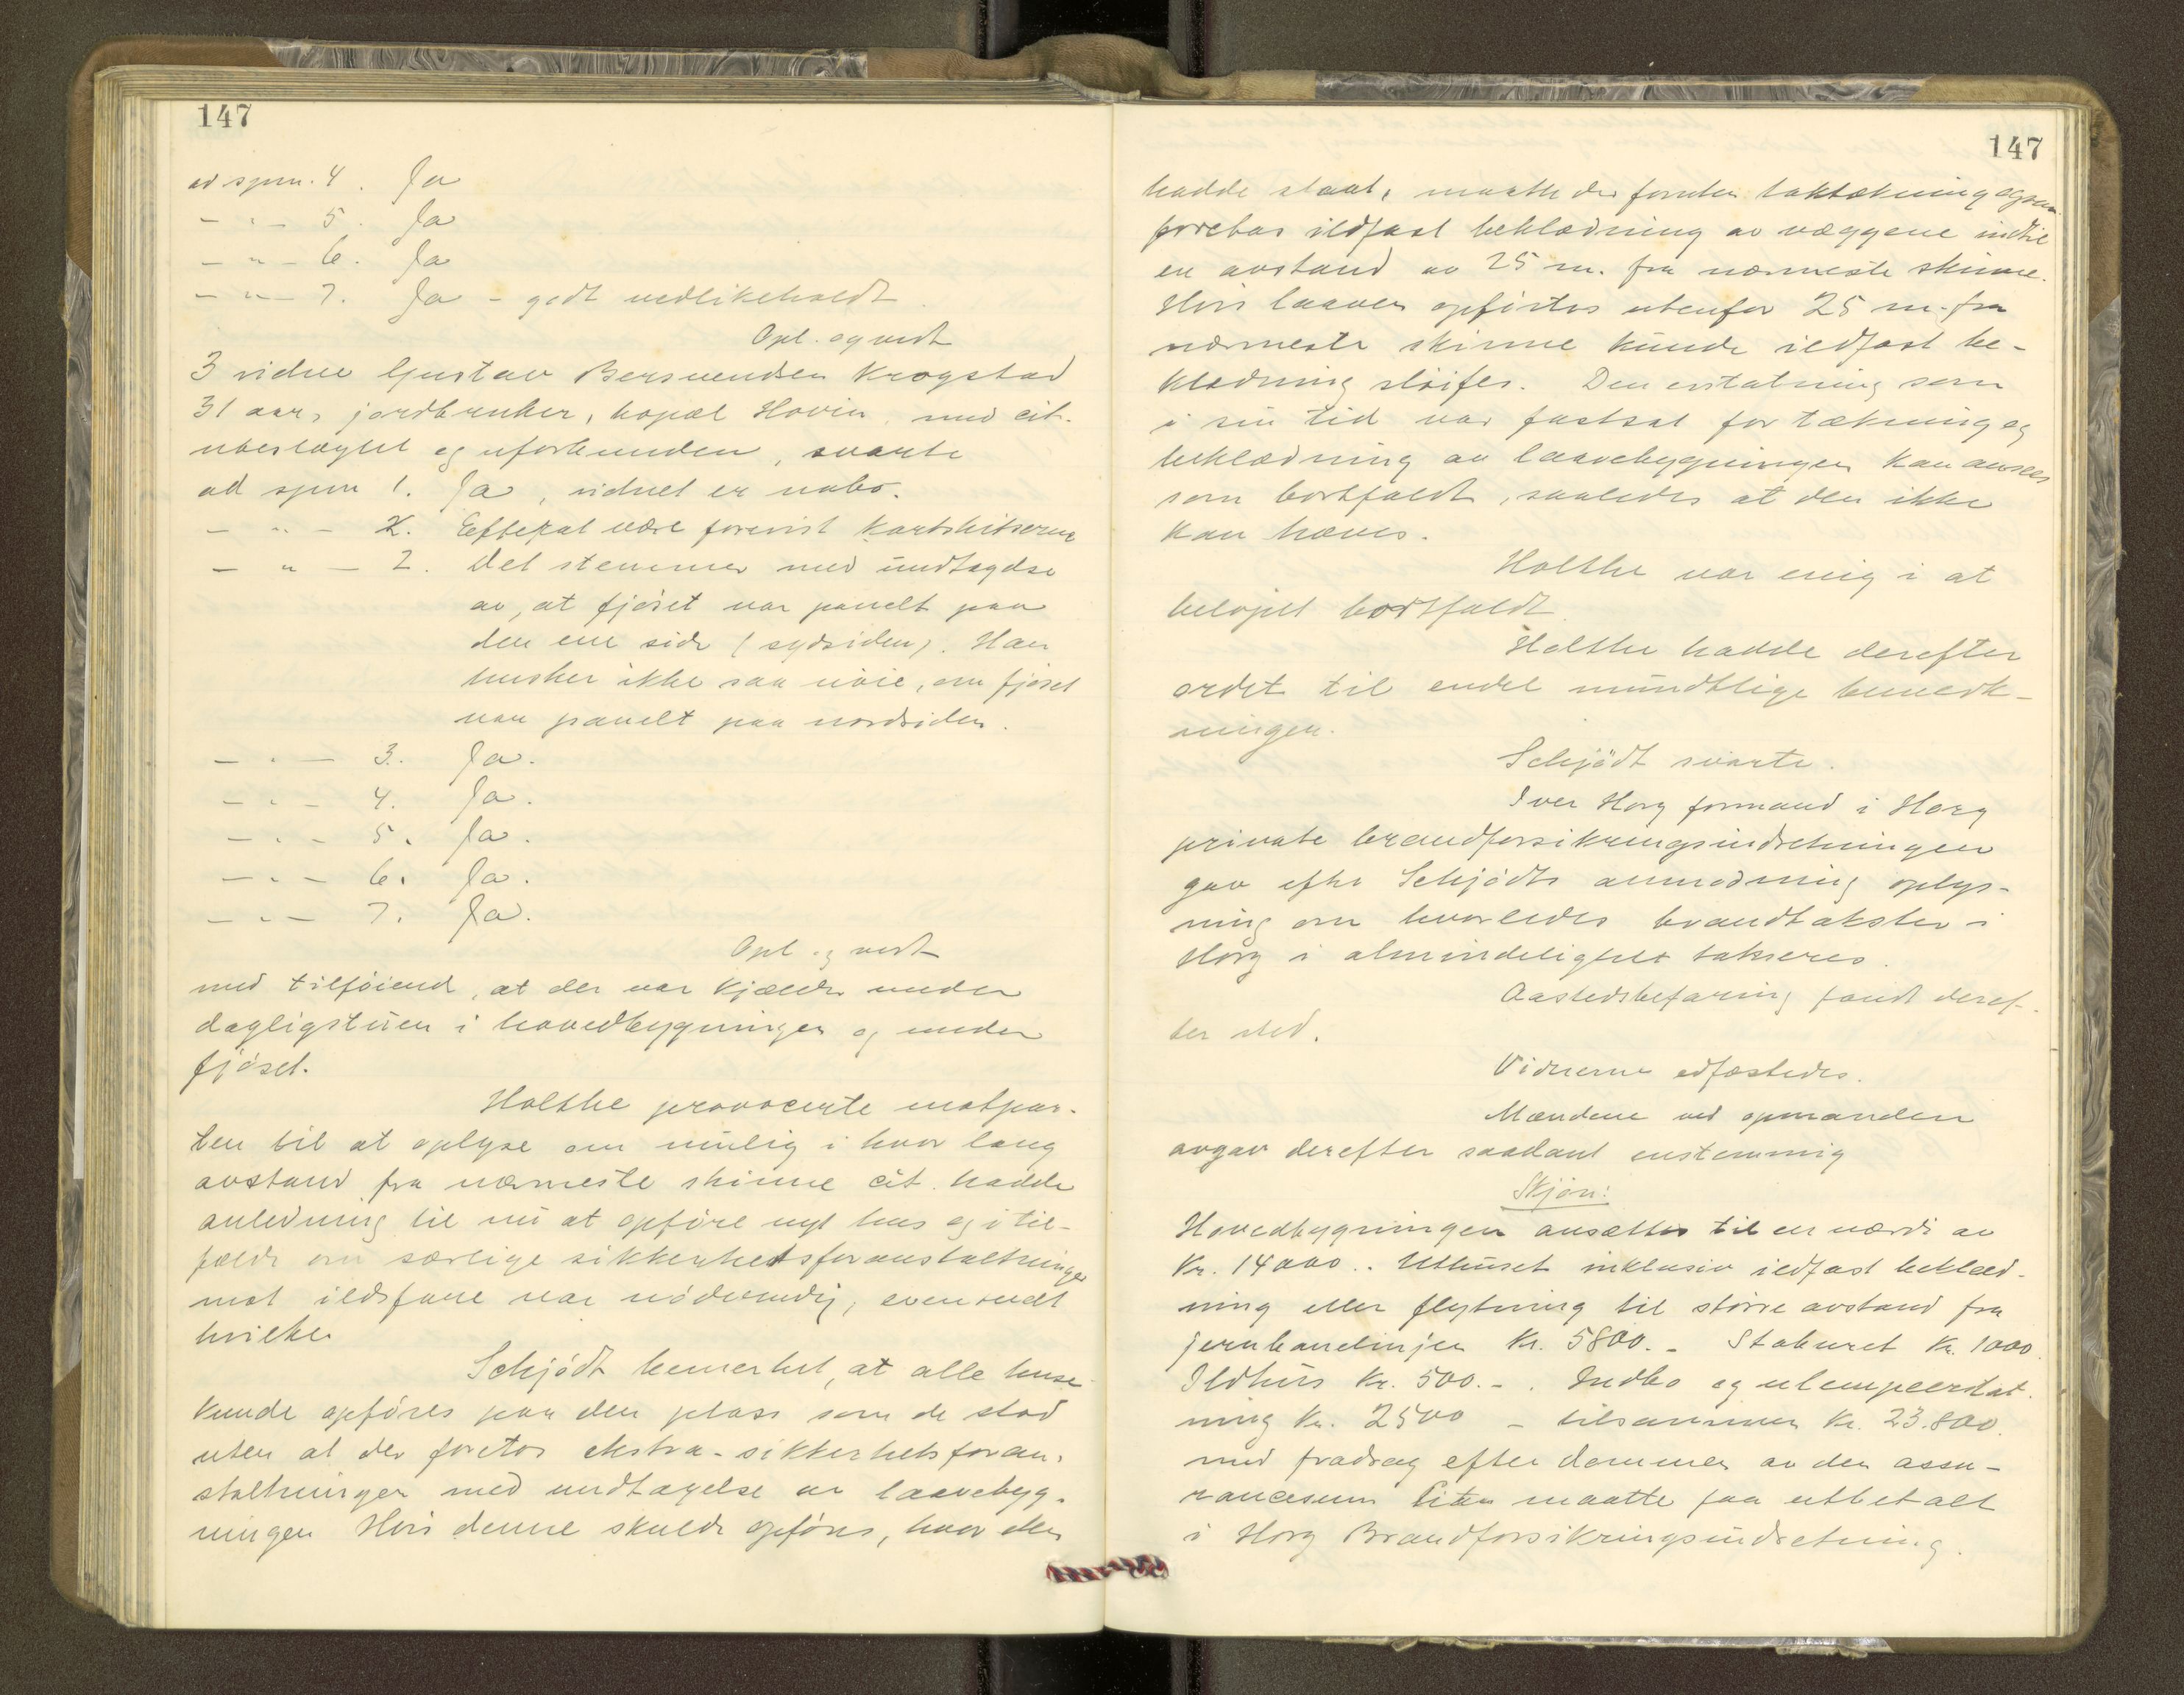 147
ad spm. 4. Ja
- " - 5. Ja
- " - 6. Ja
- " - 7. Ja - godt vedlikeholdt.
Opl. og vedt
3 vidne Gustav Bersvendsen Krogstad
31 aar, jordbruker, bopæl Hovin, med cit.
ubeslægtet og uforbunden, svarte
ad spm 1. Ja, vidnet er nabo.
- " - 2. Efterat være forevist kartskitserne
- " - 2. Det stemmer med undtagelse
av, at fjøset var panelt paa
den ene side (sydsiden). Han
husker ikke saa nøie, om fjøset
var panelt paa nordsiden.
- " - 3. Ja.
- " - 4. Ja.
- " - 5. Ja.
- " - 6. Ja.
- " - 7. Ja.
Opl. og vedt
med tilføiend, at der var kjælder under
dagligstuen i hovedbygningen og under
fjøset.
Holthe provocerte motpar-
ten til at oplyse om mulig i hvor lang
avstand fra nærmeste skinne cit. hadde
anledning til nu at opføre nyt hus og i til-
fælde om særlige sikkerhetsforanstaltninger
mot ildsfare var nødvendig, eventuelt
hvilke.
Schjødt bemerket, at alle huse
kunde opføres paa den plass som de stod
uten at der foretos ekstra-sikkerhetsforan-
staltninger med undtagelse av laavebyg-
ningen Hvis denne skulde opføres, hvor den
147
hadde staat, maatte der foruten taktækning ogsaa
foretas ildfast beklædning av væggene indtil
en avstand av 25 m. fra nærmeste skinne.
Hvis laaven opførtes utenfor 25 m. fra
nærmeste skinne kunde ildfast be-
klædning sløifes. Den erstatning som
i sin tid var fastsat for tækning og
beklædning av laavebygningen kan ansees
som bortfaldt, saaledes at den ikke
kan hæves.
Holthe var enig i at
beløpet bortfaldt.
Holthe hadde derefter
ordet til endel mundtlige bemerk-
ninger.
Schjødt svarte.
Iver Horg formand i Horg
private brandforsikringsindretningen
gav efter Schjødts anmodning oplys-
ning om hvorledes brandtakster i
Horg i almindelighet takseres.
Aastedsbefaring fandt deref-
ter sted.
Vidnerne edfæstedes.
Mændene ved opmanden
avgav derefter saadant enstemmig
Skjøn:
Hovedbygningen ansættes til en værdi av
Kr. 14000.. Uthuset inklusiv ildfast beklæd-
ning eller flytning til større avstand fra
jernbanelinjen Kr. 5800.- Staburet Kr. 1000.
Ildhus Kr. 500.-. Indbo og ulempeerstat-
ning Kr. 2500 - tilsammen Kr. 23.800.
med fradrag efter dommen av den assu-
rancesum Citan maatte faa utbetalt
i Horg Brandforsikringsindretning.